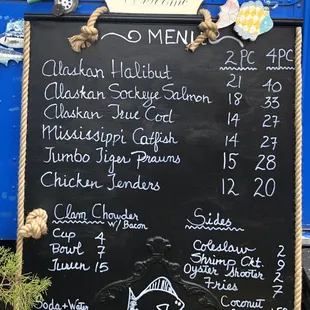 Welcome
MENU
2PC 4PC
Alaskan Halibut 21 40
Alaskan Sockeye Salmon 18 33
Alaskan True Cod 14 27
Mississippi Catfish 14 27
Jumbo Tiger Prawns 15 28
Chicken Tenders 12 20
Clam Chowder
w/ Bacon
Cup 4
Bowl 7
15
Sides
Coleslaw 2
Shrimp Ckt. 9
Oyster Shooter 2
Fries 7
Coconut
Soda + Water